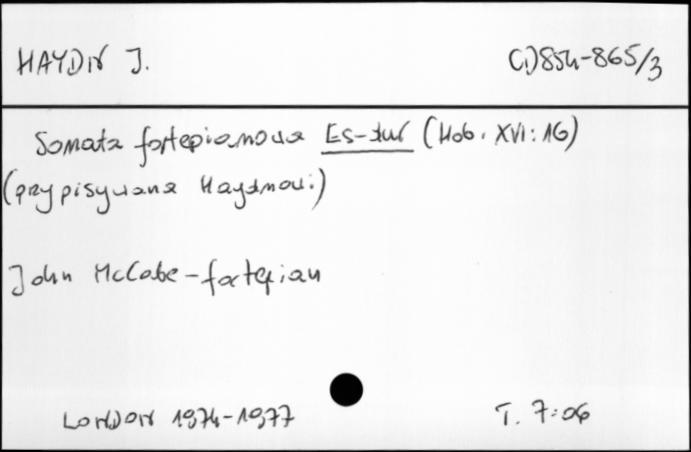 HAYDN J. CD854-865/3
Sonata fortepianowa Es-dur (Hob. XVI:16)
(przypisywana Haydnowi)
John McCabe - fortepian
LONDON 1974-1977 T. 7:06